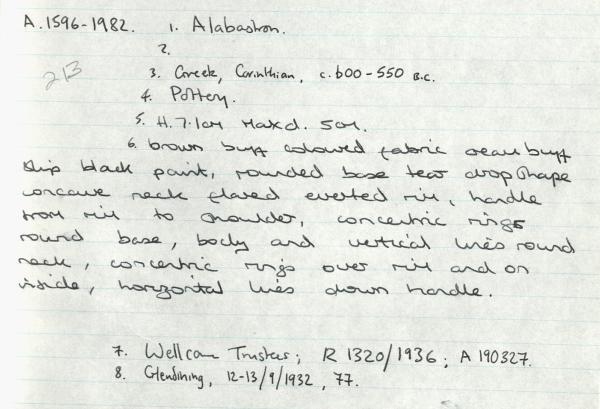 A.1596-1982. 1. Alabastron.
2.
213
3. Greek, Corinthian, c.600-550 B.C.
4. Pottery.
5. H.7.1cm Max d. 5cm.
6. brown buff coloured fabric cream buff
slip black paint, rounded base tear drop shape
concave neck flared everted rim, handle
from rim to shoulder, concentric rings
round base, body and vertical lines round
neck, concentric rings over rim and on
inside, horizontal lines down handle.
7. Wellcome Trustees; R 1320/1936; A 190327.
8. Glendining, 12-13/9/1932, 77.